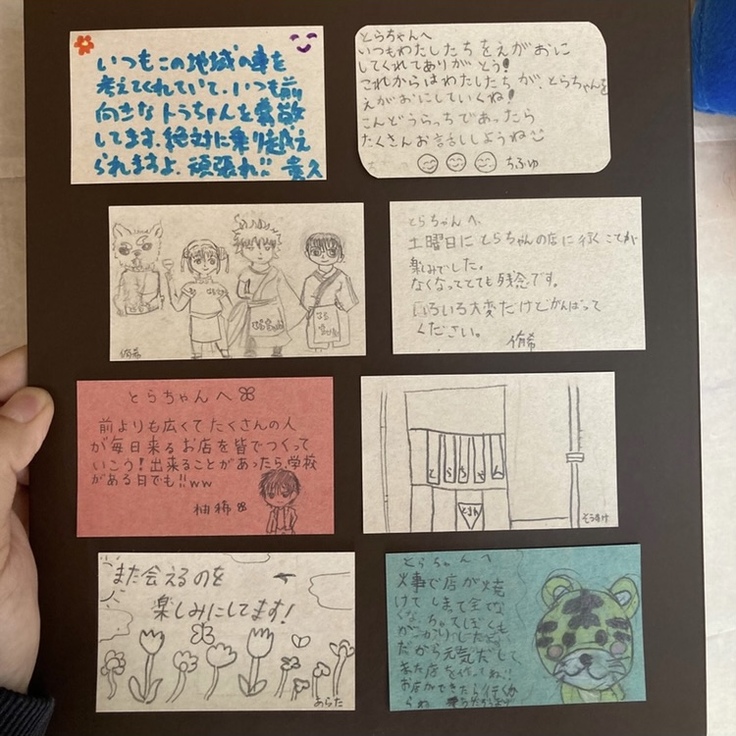 いつもこの地域の事を
考えてくれていて、いつも前
向きなトラちゃんを尊敬
してます。絶対に乗り越え
られますよ。頑張れ!! 貴久
とらちゃんへ
いつもわたしたちをえがおに
してくれてありがとう!
これからはわたしたちが、とらちゃんを
えがおにしていくね!
こんどうらっちであったら
たくさんお話ししようね
ちふゆ
侑希
とらちゃんへ
土曜日にとらちゃんの店に行くことが
楽みでした。
なくなってとても残念です。
いろいろ大変だけどがんばって
ください。
侑希
とらちゃんへ
前よりも広くてたくさんの人
が毎日来るお店を皆でつくって
いこう!出来ることがあったら、学校
がある日でも!!ww
柚稀
とらちゃん
そうすけ
また会えるのを
楽しみにしてます!
あらた
とらちゃんへ
火事で店が焼
けてしまて全てな
くなちゃてぼくも
がっかりしたよ
だから元気だして
また店を作ってね!!
お店ができたら行くか
らね